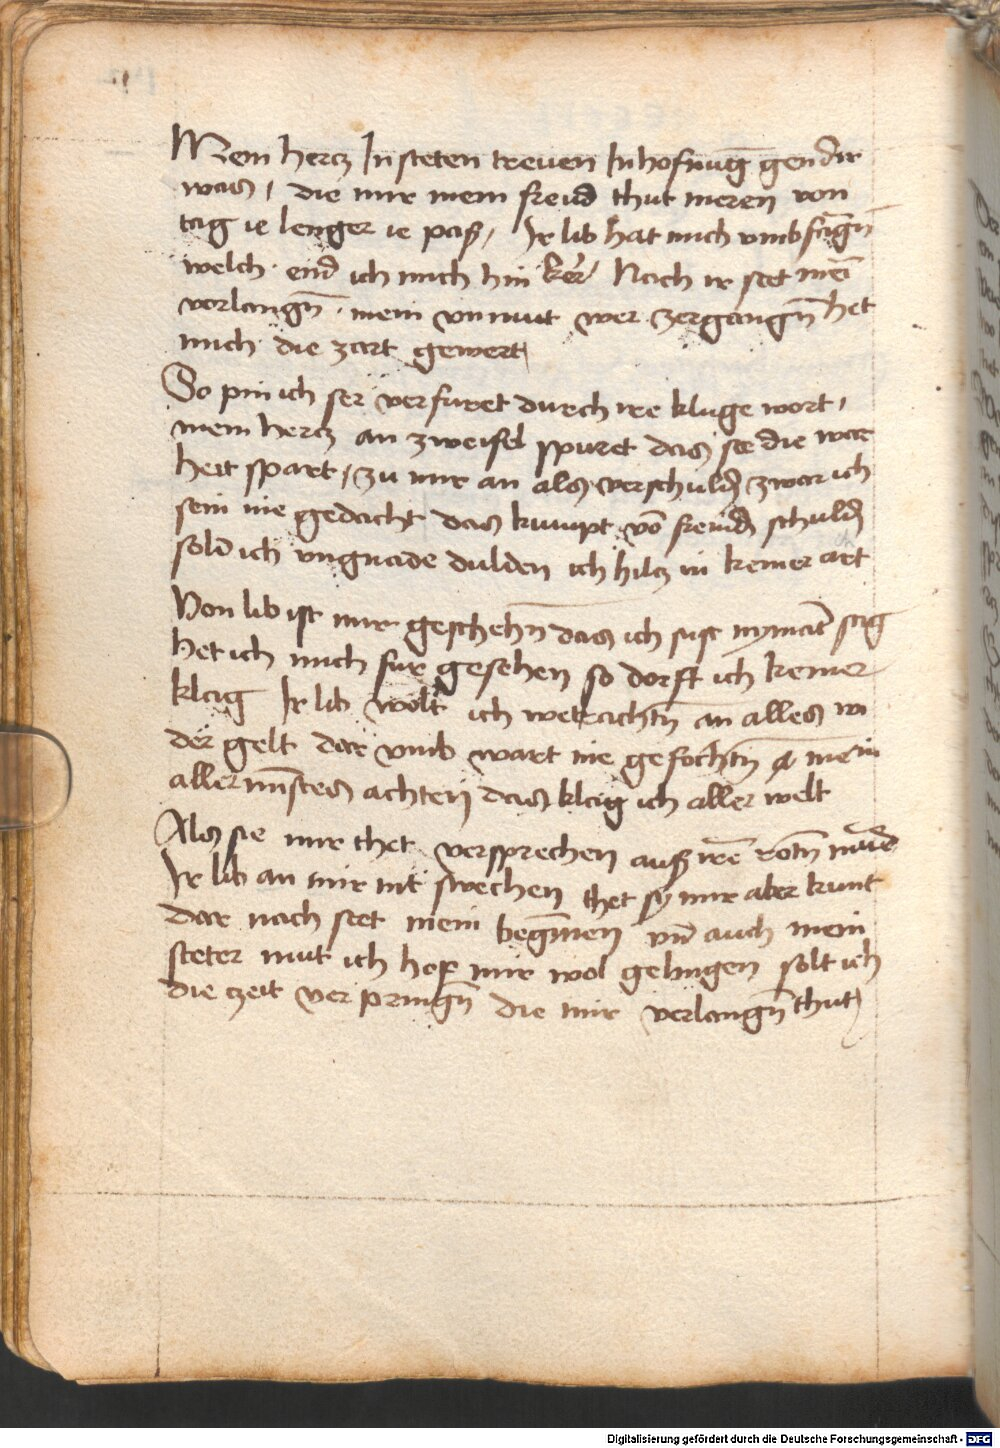 Mein hercz In steten treuen In hofnūg gen der
was / die mir mein freud thut meren von
tag ie lenger ie paß / Ir lib hat mich vmbfāgn̄
welch end ich mich hin ker Nach ir stet mei᷑
vorlangn̄ · mein vnmut wer zergangn̄ het
mich die zart gewert /
So pin ich ser verfuret durch ire kluge wort /
mein hercz an zweifel spuret das sie die war
heit spart / zu mir an als verschuldn̄ zwar ich
sein nie gedacht das kumpt vō freudn̄ schuldn̄
sold ich vngnade dulden ich hilcz in keiner art
Von lib ist mir geschehn̄ das ich sust nymāt sag
het ich mich fur gesehen so dorfft ich keiner
klag Ir lib wolt ich wetrachtn̄ an alles wi
der gelt dar vmb wart nie gefochtn̄ mein
aller mīstes achten das klag ich aller welt
Als sie mir thet versprechen auß irē rotn̄ mūd
Ir lib an mir nit swechen thet sy mir aber kunt
dar nach stet mein begīnen vn̄d auch mein
steter mut ich hoff mir wol gelingen solt ich
die czeit ver pringn̄ die mir verlangn̄ thut /
Digitalisierung gefördert durch die Deutsche Forschungsgemeinschaft - DFG